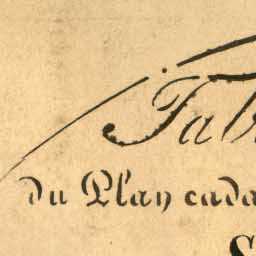 Tab
du Plan cada